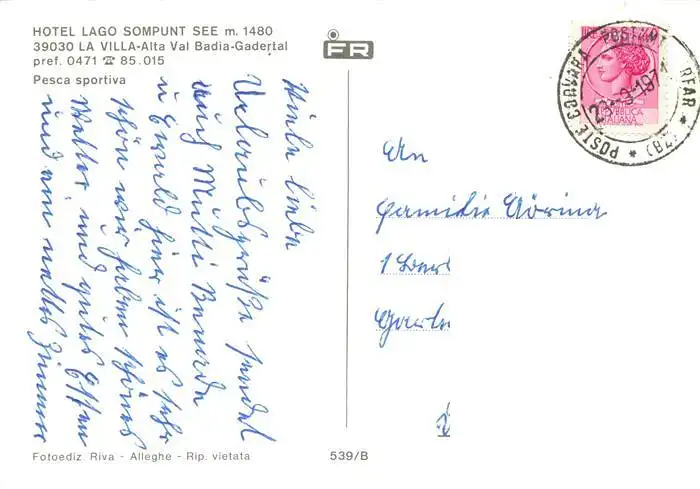 HOTEL LAGO SOMPUNT SEE m. 1480
39030 LA VILLA-Alta Val Badia-Gadertal
pref. 0471 ☎ 85.015
Pesca sportiva
FR
Viele liebe
Urlaubsgrüße sendet
auch Mutti
u Ewald hier ist es sehr
schön wir haben schönes
Wetter und gutes Essen
und ein nettes Zimmer
POSTE CORVARA
(BZ)
REPUBBLICA
ITALIANA
An
Familie
1 Ber
Garte
Fotoediz. Riva - Alleghe - Rip. vietata
539/B